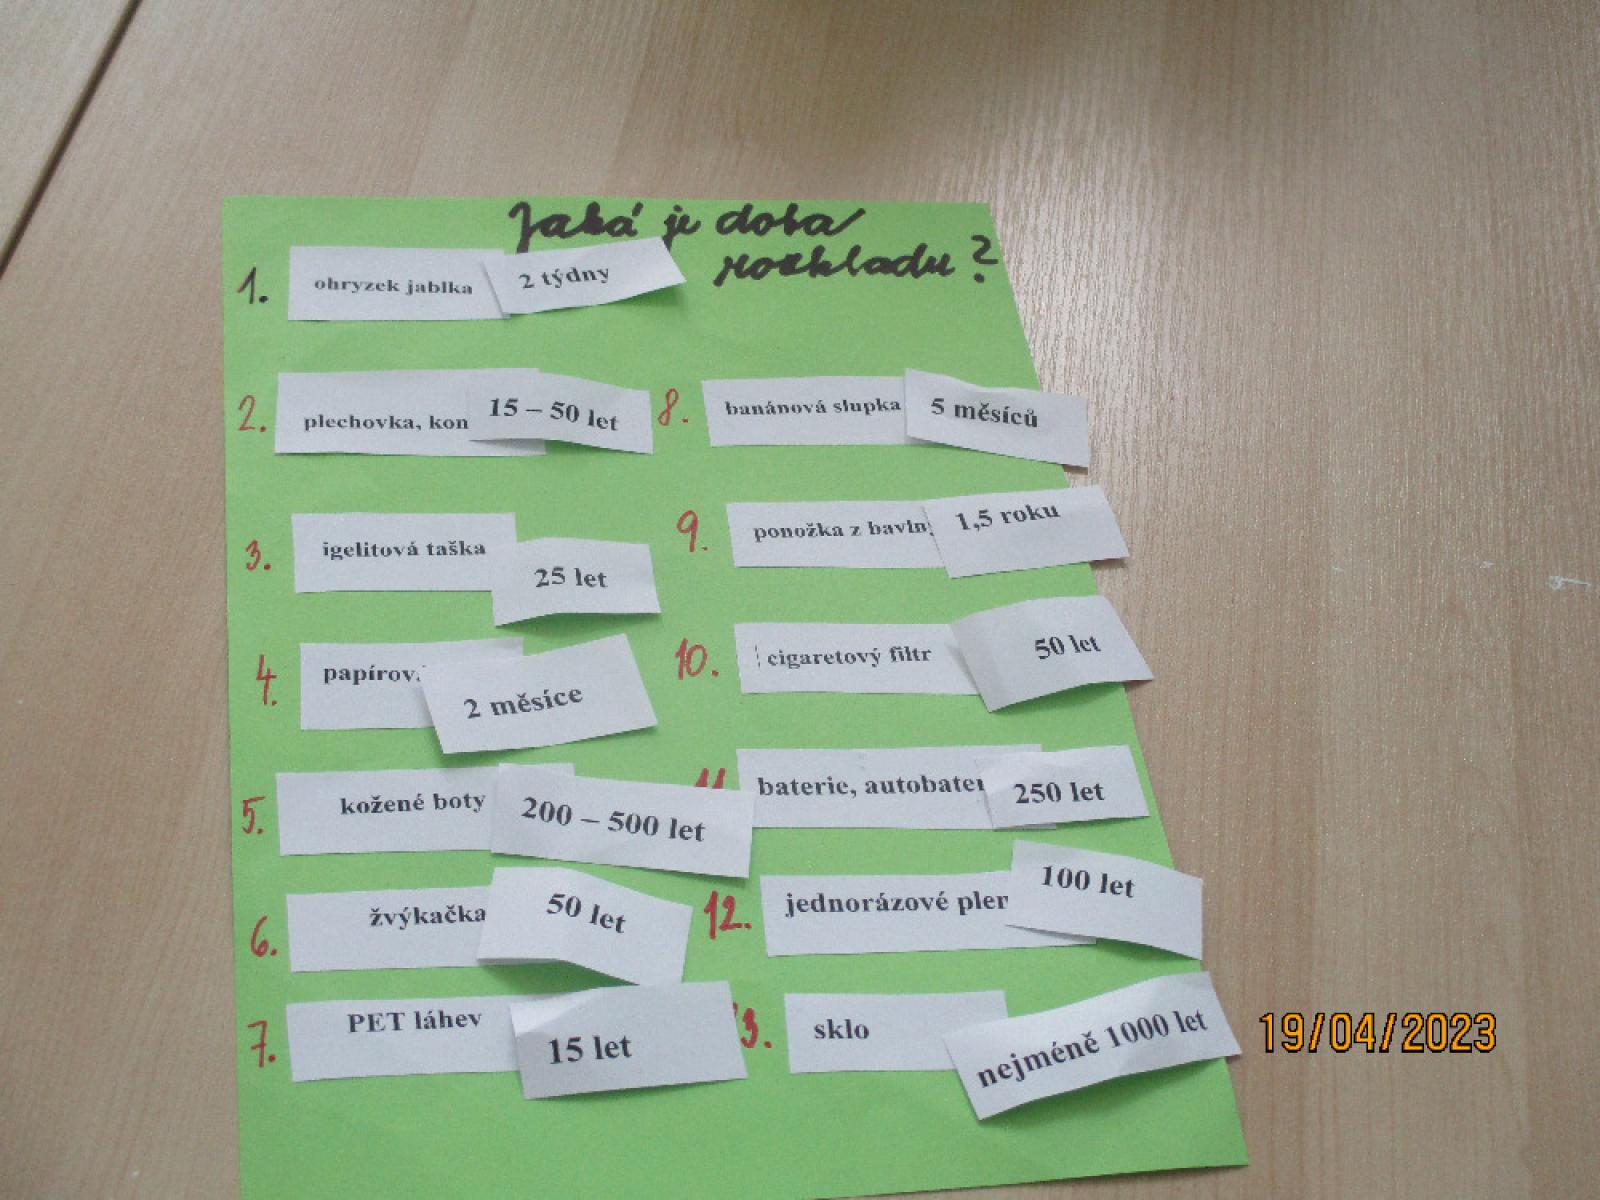 Jaká je doba
rozkladu?
1. ohryzek jablka 2 týdny
2. plechovka, kon 15 – 50 let
3. igelitová taška 25 let
4. papírov 2 měsíce
5. kožené boty 200 – 500 let
6. žvýkačka 50 let
7. PET láhev 15 let
8. banánová slupka 5 měsíců
9. ponožka z bavln 1,5 roku
10. cigaretový filtr 50 let
11. baterie, autobater 250 let
12. jednorázové plen 100 let
13. sklo nejméně 1000 let
19/04/2023